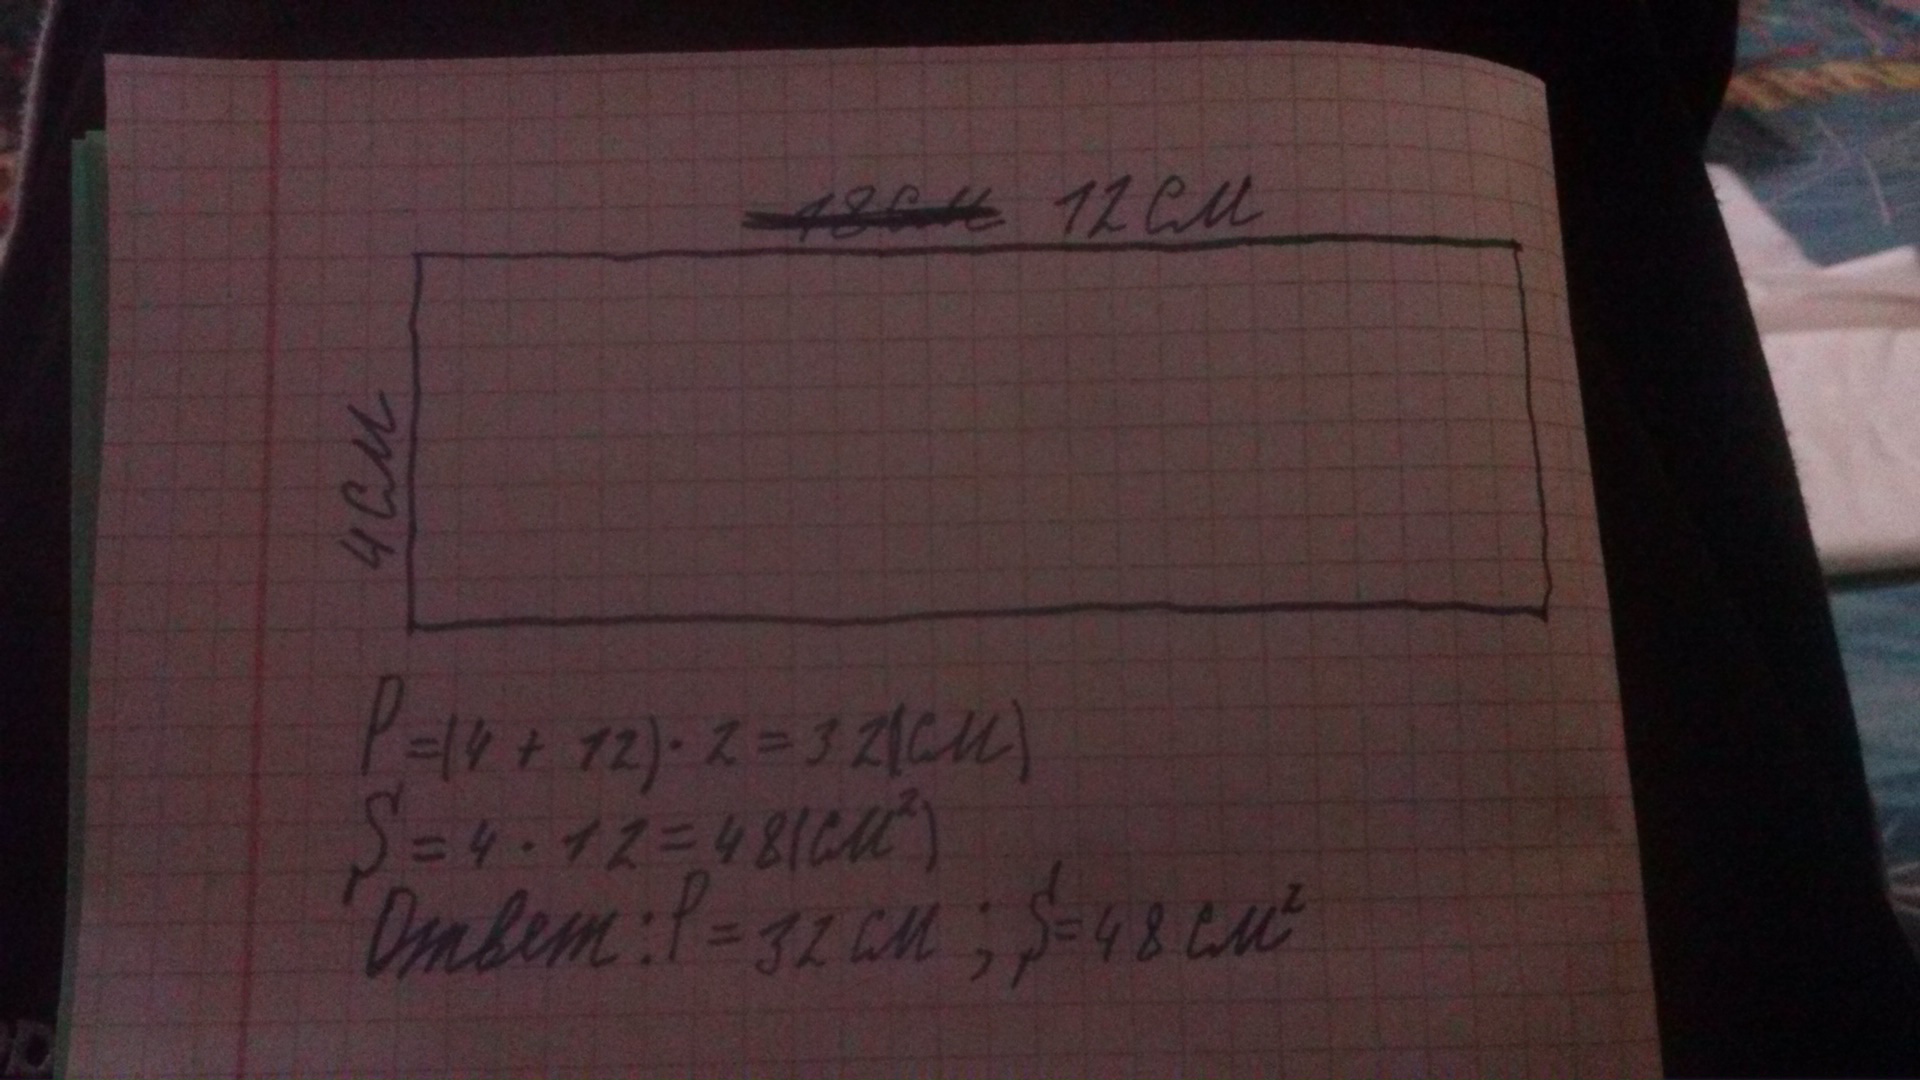 18см 12 см
4см
P=(4 + 12) · 2 = 32(см)
S = 4 · 12 = 48(см²)
Ответ: P = 32 см ; S=48 см²